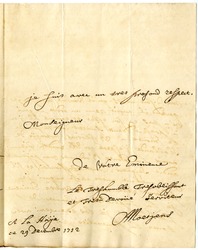 je suis avec un tres profond respect.
Monseigneur
De Vôtre Eminence
Le tres humble tres obeissant
et tres devoué Serviteur
A La Haije
ce 29 Decembre 1712